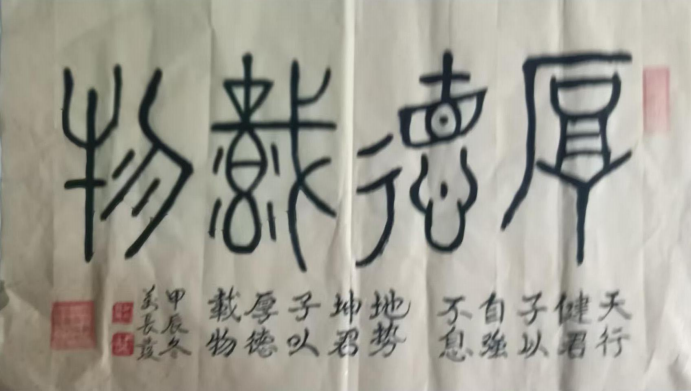 厚德载物
天行
健君
子以
自强
不息
地势
坤君
子以
厚德
載物
甲辰冬